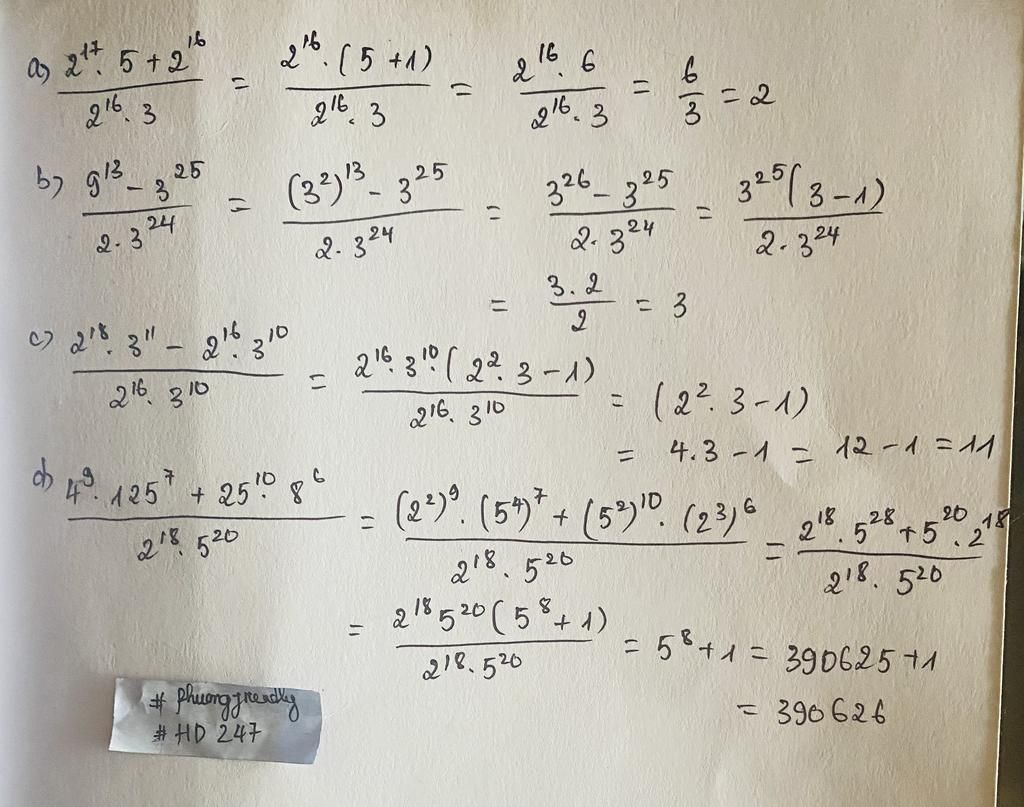 a) \frac{2^{17} \cdot 5 + 2^{16}}{2^{16} \cdot 3} = \frac{2^{16} \cdot (5 + 1)}{2^{16} \cdot 3} = \frac{2^{16} \cdot 6}{2^{16} \cdot 3} = \frac{6}{3} = 2
b) \frac{9^{13} - 3^{25}}{2 \cdot 3^{24}} = \frac{(3^2)^{13} - 3^{25}}{2 \cdot 3^{24}} = \frac{3^{26} - 3^{25}}{2 \cdot 3^{24}} = \frac{3^{25}(3 - 1)}{2 \cdot 3^{24}}
= \frac{3 \cdot 2}{2} = 3
c) \frac{2^{18} \cdot 3^{11} - 2^{16} \cdot 3^{10}}{2^{16} \cdot 3^{10}} = \frac{2^{16} \cdot 3^{10} \cdot (2^2 \cdot 3 - 1)}{2^{16} \cdot 3^{10}} = (2^2 \cdot 3 - 1)
= 4.3 - 1 = 12 - 1 = 11
d) \frac{4^9 \cdot 125^7 + 25^{10} \cdot 8^6}{2^{18} \cdot 5^{20}} = \frac{(2^2)^9 \cdot (5^4)^7 + (5^2)^{10} \cdot (2^3)^6}{2^{18} \cdot 5^{20}} = \frac{2^{18} \cdot 5^{28} + 5^{20} \cdot 2^{18}}{2^{18} \cdot 5^{20}}
= \frac{2^{18} 5^{20} (5^8 + 1)}{2^{18} \cdot 5^{20}} = 5^8 + 1 = 390625 + 1
= 390626
# HD 247